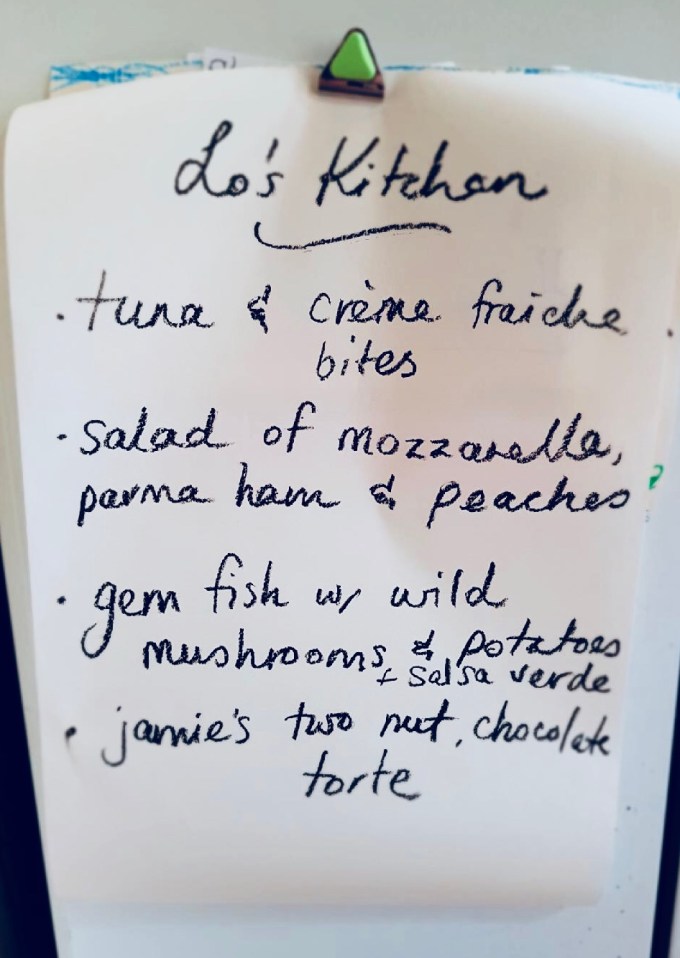 Lo's Kitchen
· tuna & crème fraiche
bites
· salad of mozzarella,
parma ham & peaches
· gem fish w/ wild
mushrooms & potatoes
+ salsa verde
· jamie's two nut, chocolate
torte